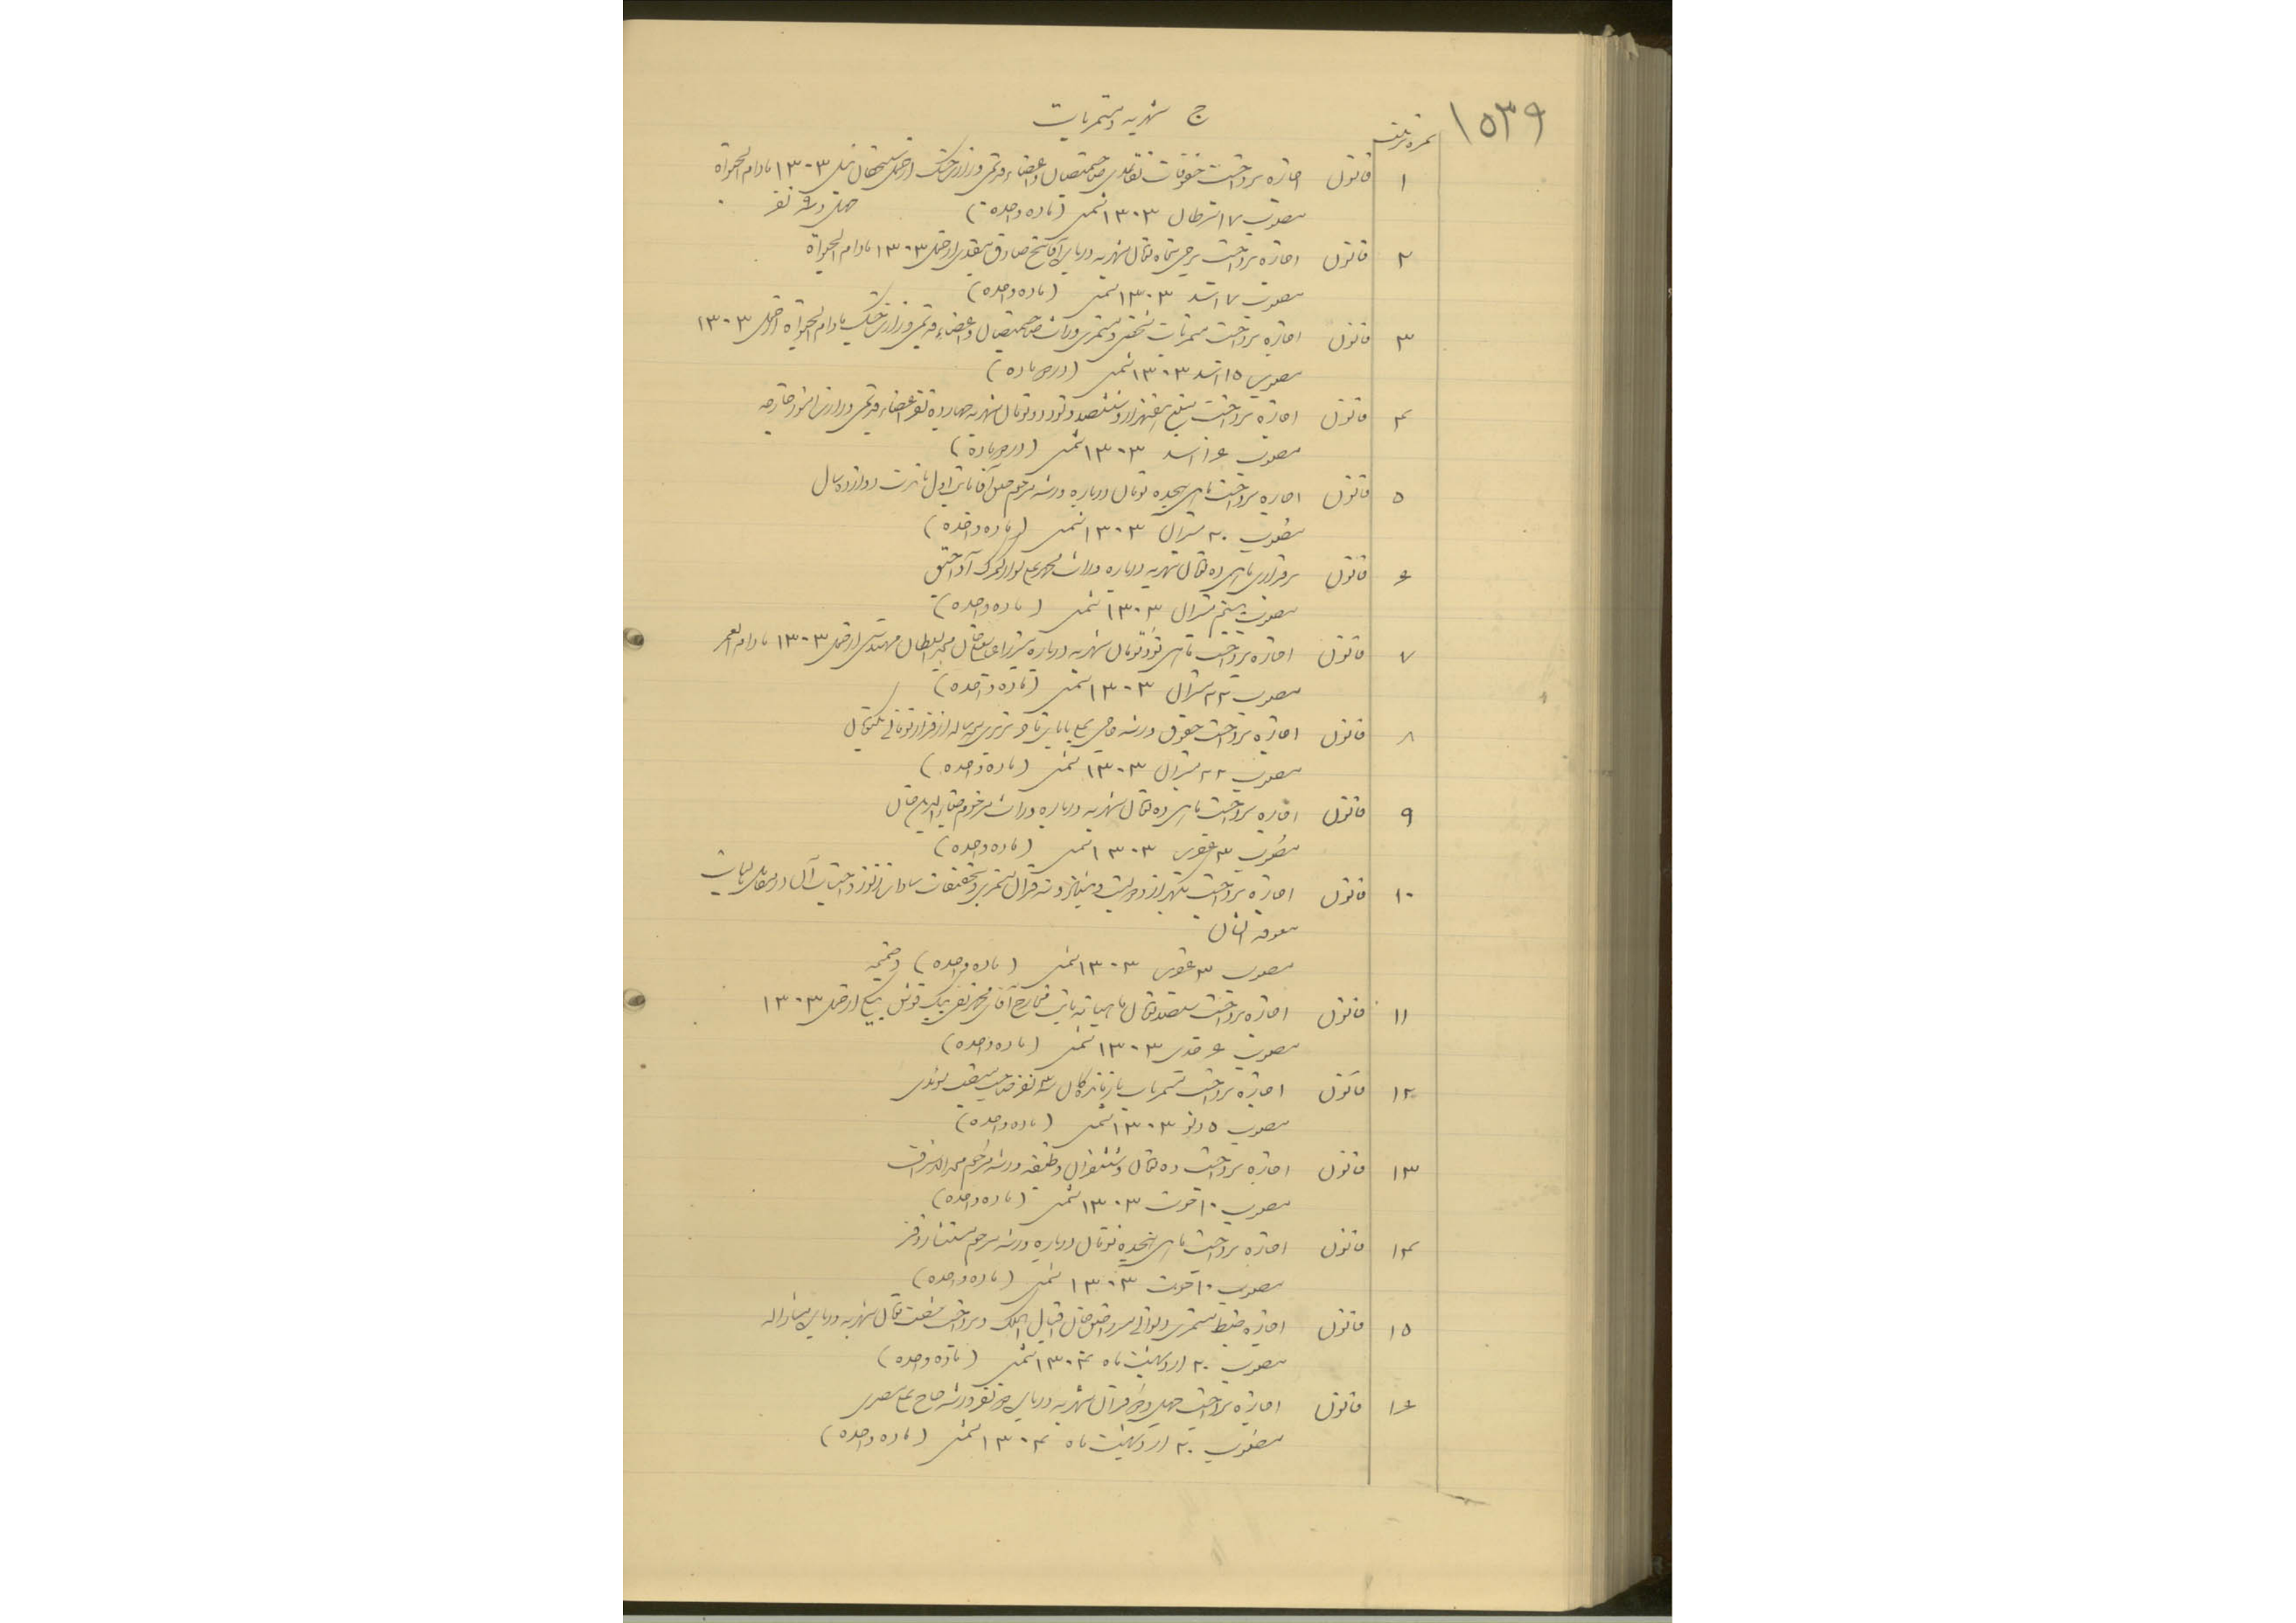 ۱۵۳۹
ج شهریه و مستمریات
نمره ترتیب
۱ قانون اجازه پرداخت حقوقات تقاعدی صاحمنصبان و اعضاء قدیمی وزارت جنگ از حمل ۱۳۰۳ مادام الحیوة
مصوب ۱۷ سرطان ۱۳۰۳ شمسی (ماده واحده) نفر
۲ قانون اجازه پرداخت برجی پنجاه تومان شهریه درباره آقا شیخ صادق از حمل ۱۳۰۳ مادام الحیوة
مصوب ۷ اسد ۱۳۰۳ شمسی (ماده واحده)
۳ قانون اجازه پرداخت مستمریات شخصی و مستمری وراث صاحمنصبان و اعضاء قدیمی وزارت جنگ مادام الحیوة از حمل ۱۳۰۳
مصوب ۱۵ اسد ۱۳۰۳ شمسی (دو ماده)
۴ قانون اجازه پرداخت مبلغ هفتهزار و ششصد و نود و دو تومان شهریه چهارده نفر اعضاء قدیمی وزارت امور خارجه
مصوب ۱۶ اسد ۱۳۰۳ شمسی (دو ماده)
۵ قانون اجازه پرداخت ماهی هیجده تومان درباره ورثه مرحوم آقا تا مدت دوازده سال
مصوب ۲۰ میزان ۱۳۰۳ شمسی (ماده واحده)
۶ قانون برقراری ماهی ده تومان شهریه درباره وراث
مصوب بیستم میزان ۱۳۰۳ شمسی (ماده واحده)
۷ قانون اجازه پرداخت ماهی نود تومان شهریه درباره میرزا خان مهندس از حمل ۱۳۰۳ مادام العمر
مصوب ۲۲ میزان ۱۳۰۳ شمسی (ماده واحده)
۸ قانون اجازه پرداخت حقوق ورثه حاجی از قرار تومانی یکتومان
مصوب ۲۲ میزان ۱۳۰۳ شمسی (ماده واحده)
۹ قانون اجازه پرداخت ماهی ده تومان شهریه درباره وراث مرحوم خان
مصوب ۳ عقرب ۱۳۰۳ شمسی (ماده واحده)
۱۰ قانون اجازه پرداخت یکهزار و دویست و قران مستمری و تخفیفات سادات
معوقه آنان
مصوب ۳ عقرب ۱۳۰۳ شمسی (ماده واحده) و ضمیمه
۱۱ قانون اجازه پرداخت سیصد تومان ماهیانه بابت مخارج آقای از حمل ۱۳۰۳
مصوب ۶ جدی ۱۳۰۳ شمسی (ماده واحده)
۱۲ قانون اجازه پرداخت مستمریات بازماندگان نفر صاحب منصب سوئدی
مصوب ۵ دلو ۱۳۰۳ شمسی (ماده واحده)
۱۳ قانون اجازه پرداخت ده تومان و ششقران وظیفه ورثه مرحوم
مصوب ۱۰ حوت ۱۳۰۳ شمسی (ماده واحده)
۱۴ قانون اجازه پرداخت ماهی هیجده تومان درباره ورثه مرحوم مستشار دفتر
مصوب ۱۰ حوت ۱۳۰۳ شمسی (ماده واحده)
۱۵ قانون اجازه ضبط مستمری دیوانی خان اقبال الملک و پرداخت شصت تومان شهریه درباره مشارالیه
مصوب ۲۰ اردیبهشت ماه ۱۳۰۴ شمسی (ماده واحده)
۱۶ قانون اجازه پرداخت چهل و دو قران شهریه درباره دو نفر ورثه حاج
مصوب ۲۰ اردیبهشت ماه ۱۳۰۴ شمسی (ماده واحده)